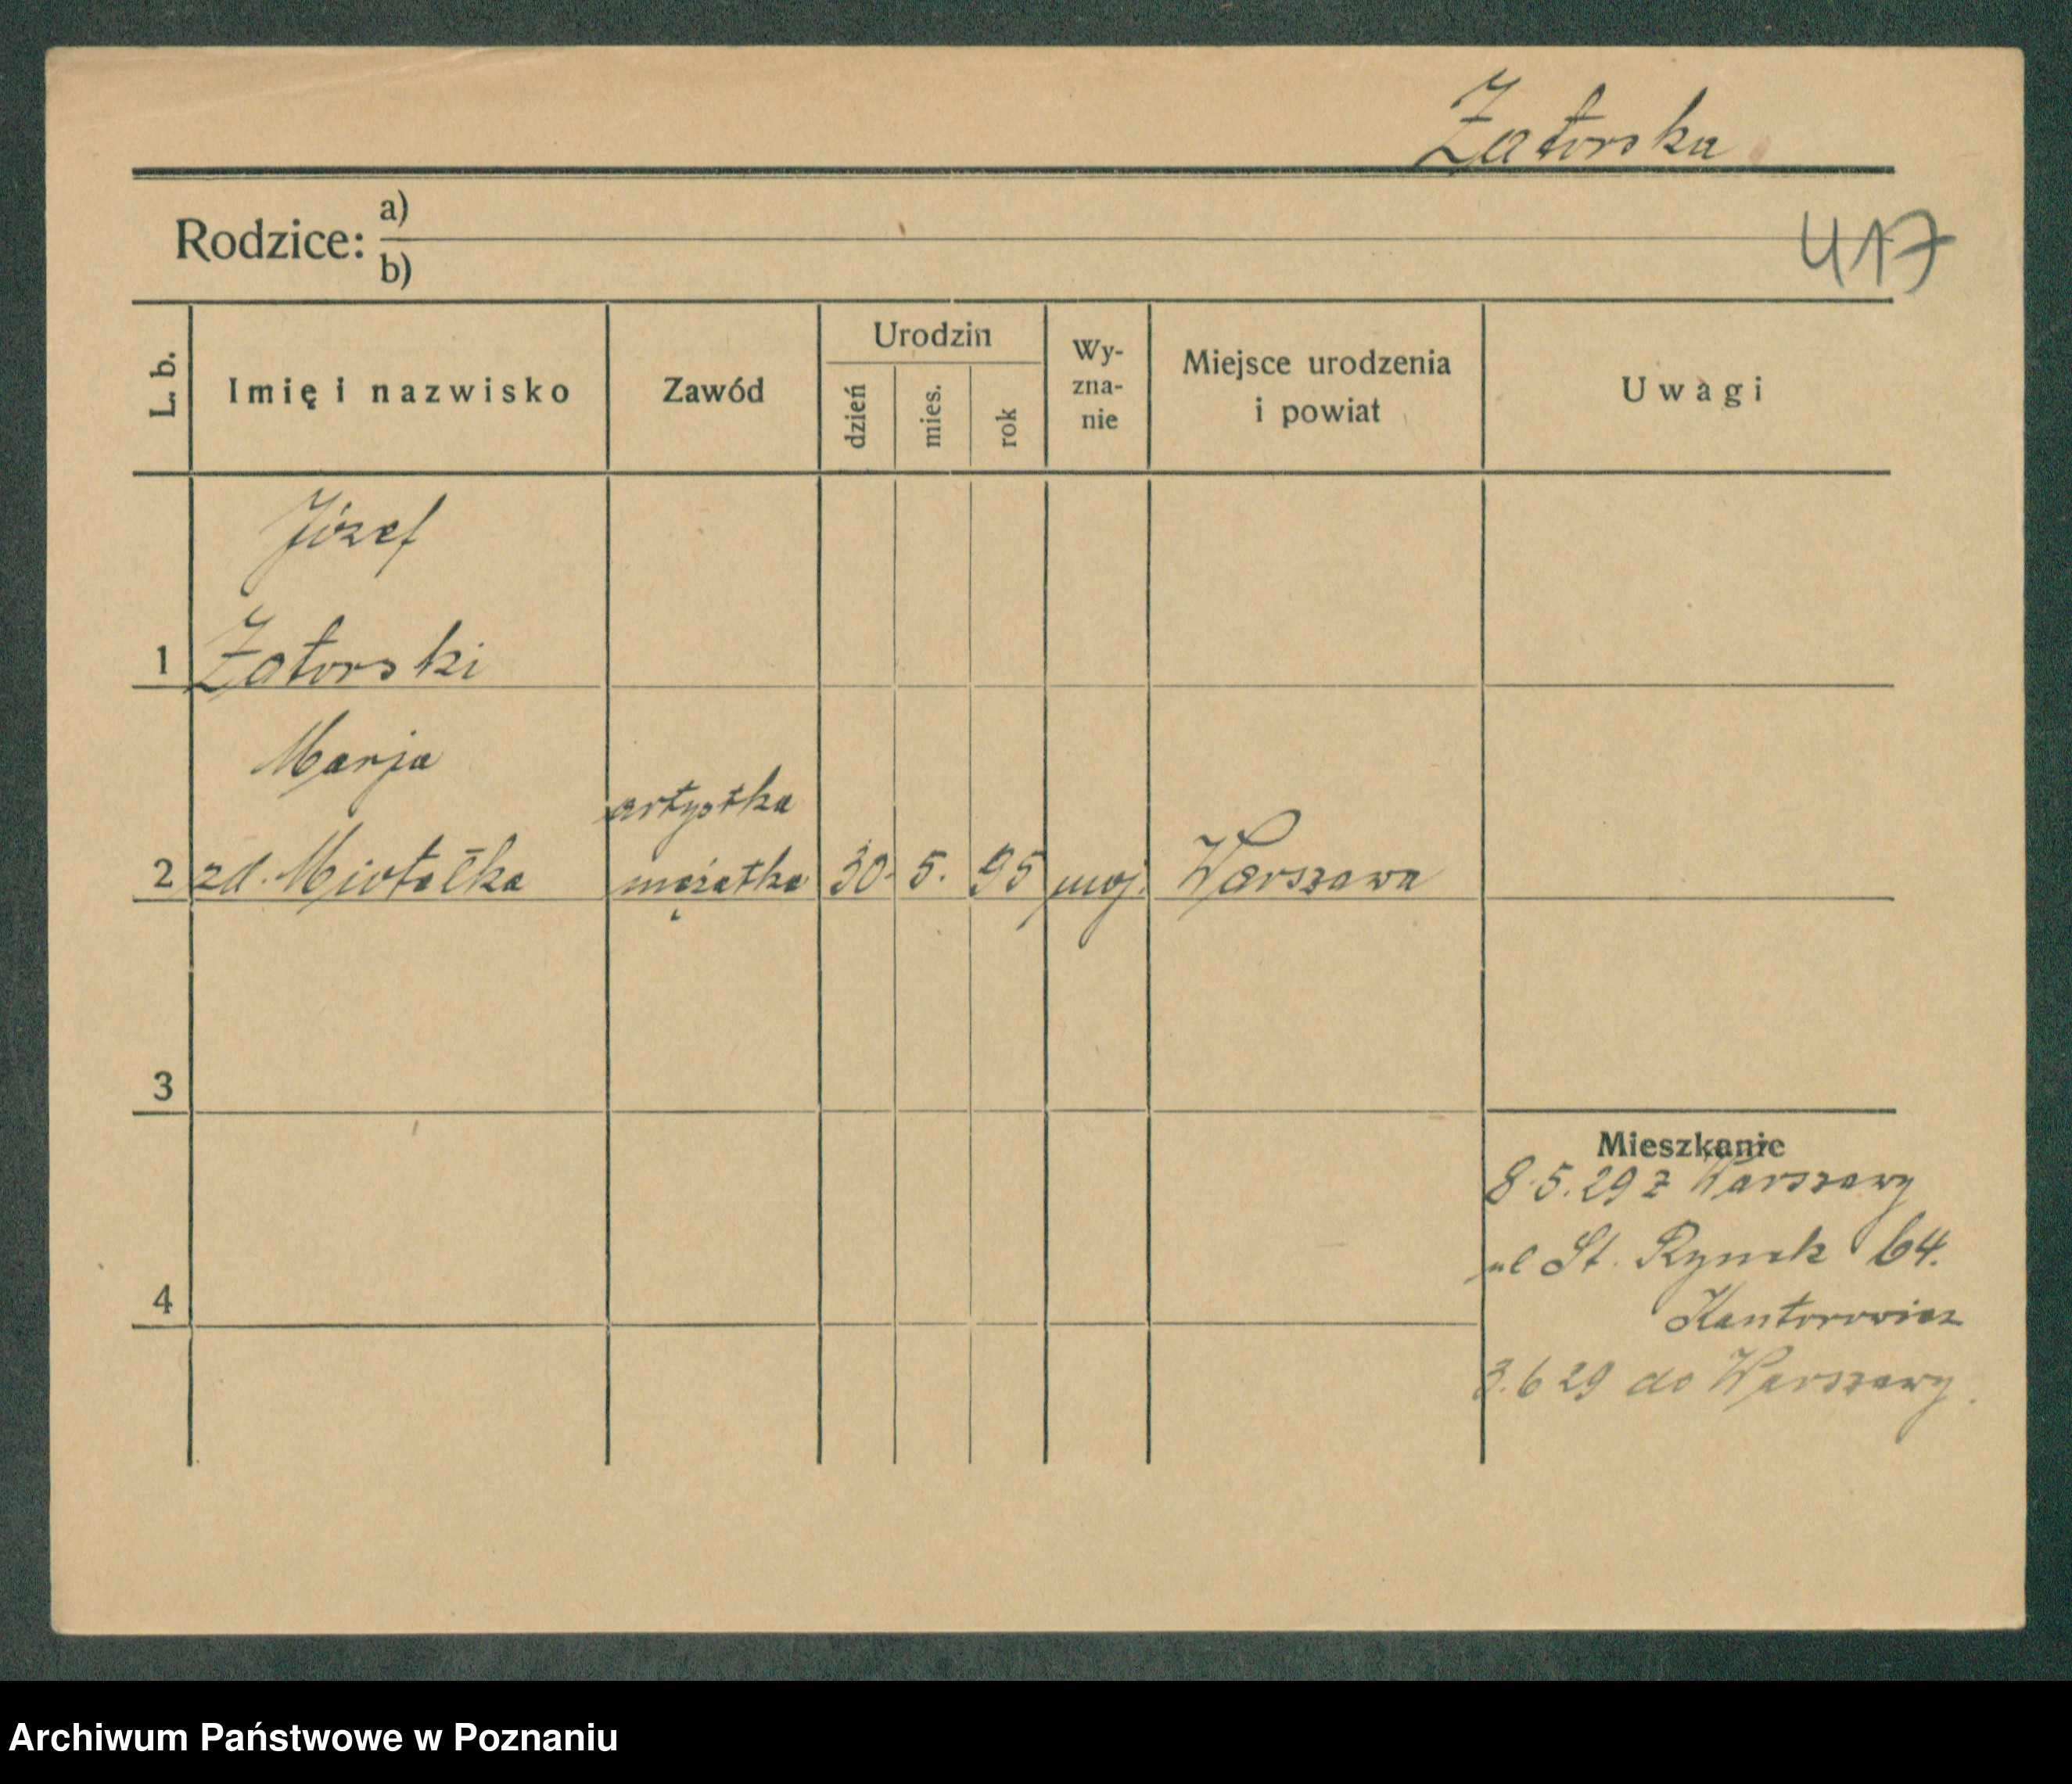 Zatorska
Rodzice: a)
b)
417
L. b.
Imię i nazwisko
Zawód
Urodzin
dzień
mies.
rok
Wy-
zna-
nie
Miejsce urodzenia
i powiat
Uwagi
Józef
1 Zatorski
Marja
artystka
2 zd. mężatka 30. 5. 95 moj. Warszawa
3
Mieszkanie
8.5.29 z Warszawy
ul St. Rynek 64.
4
Kantorowicz
3.6 29 do Warszawy.
Archiwum Państwowe w Poznaniu